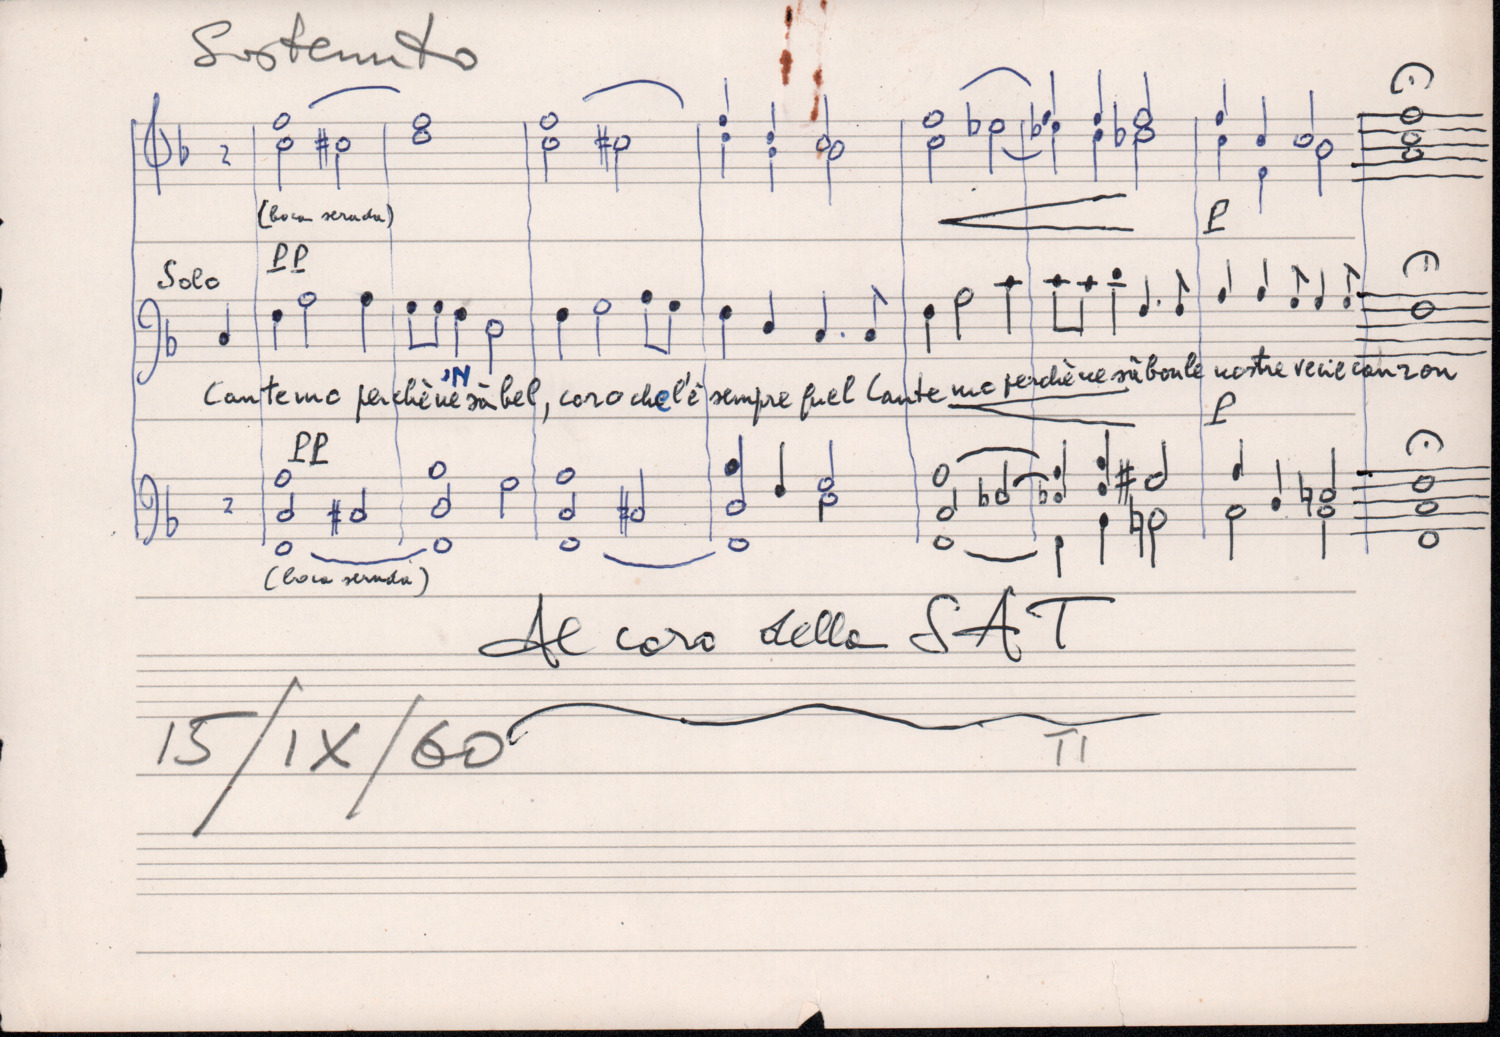 Sostenuto
(boca serada)
PP
P
Solo
'N
Cantemo perchè ne sà bel, coro che l'è sempre quel Cantemo perchè ne sà boule nostre vecie canzon
PP
P
(boca serada)
Al coro della SAT
15/IX/60